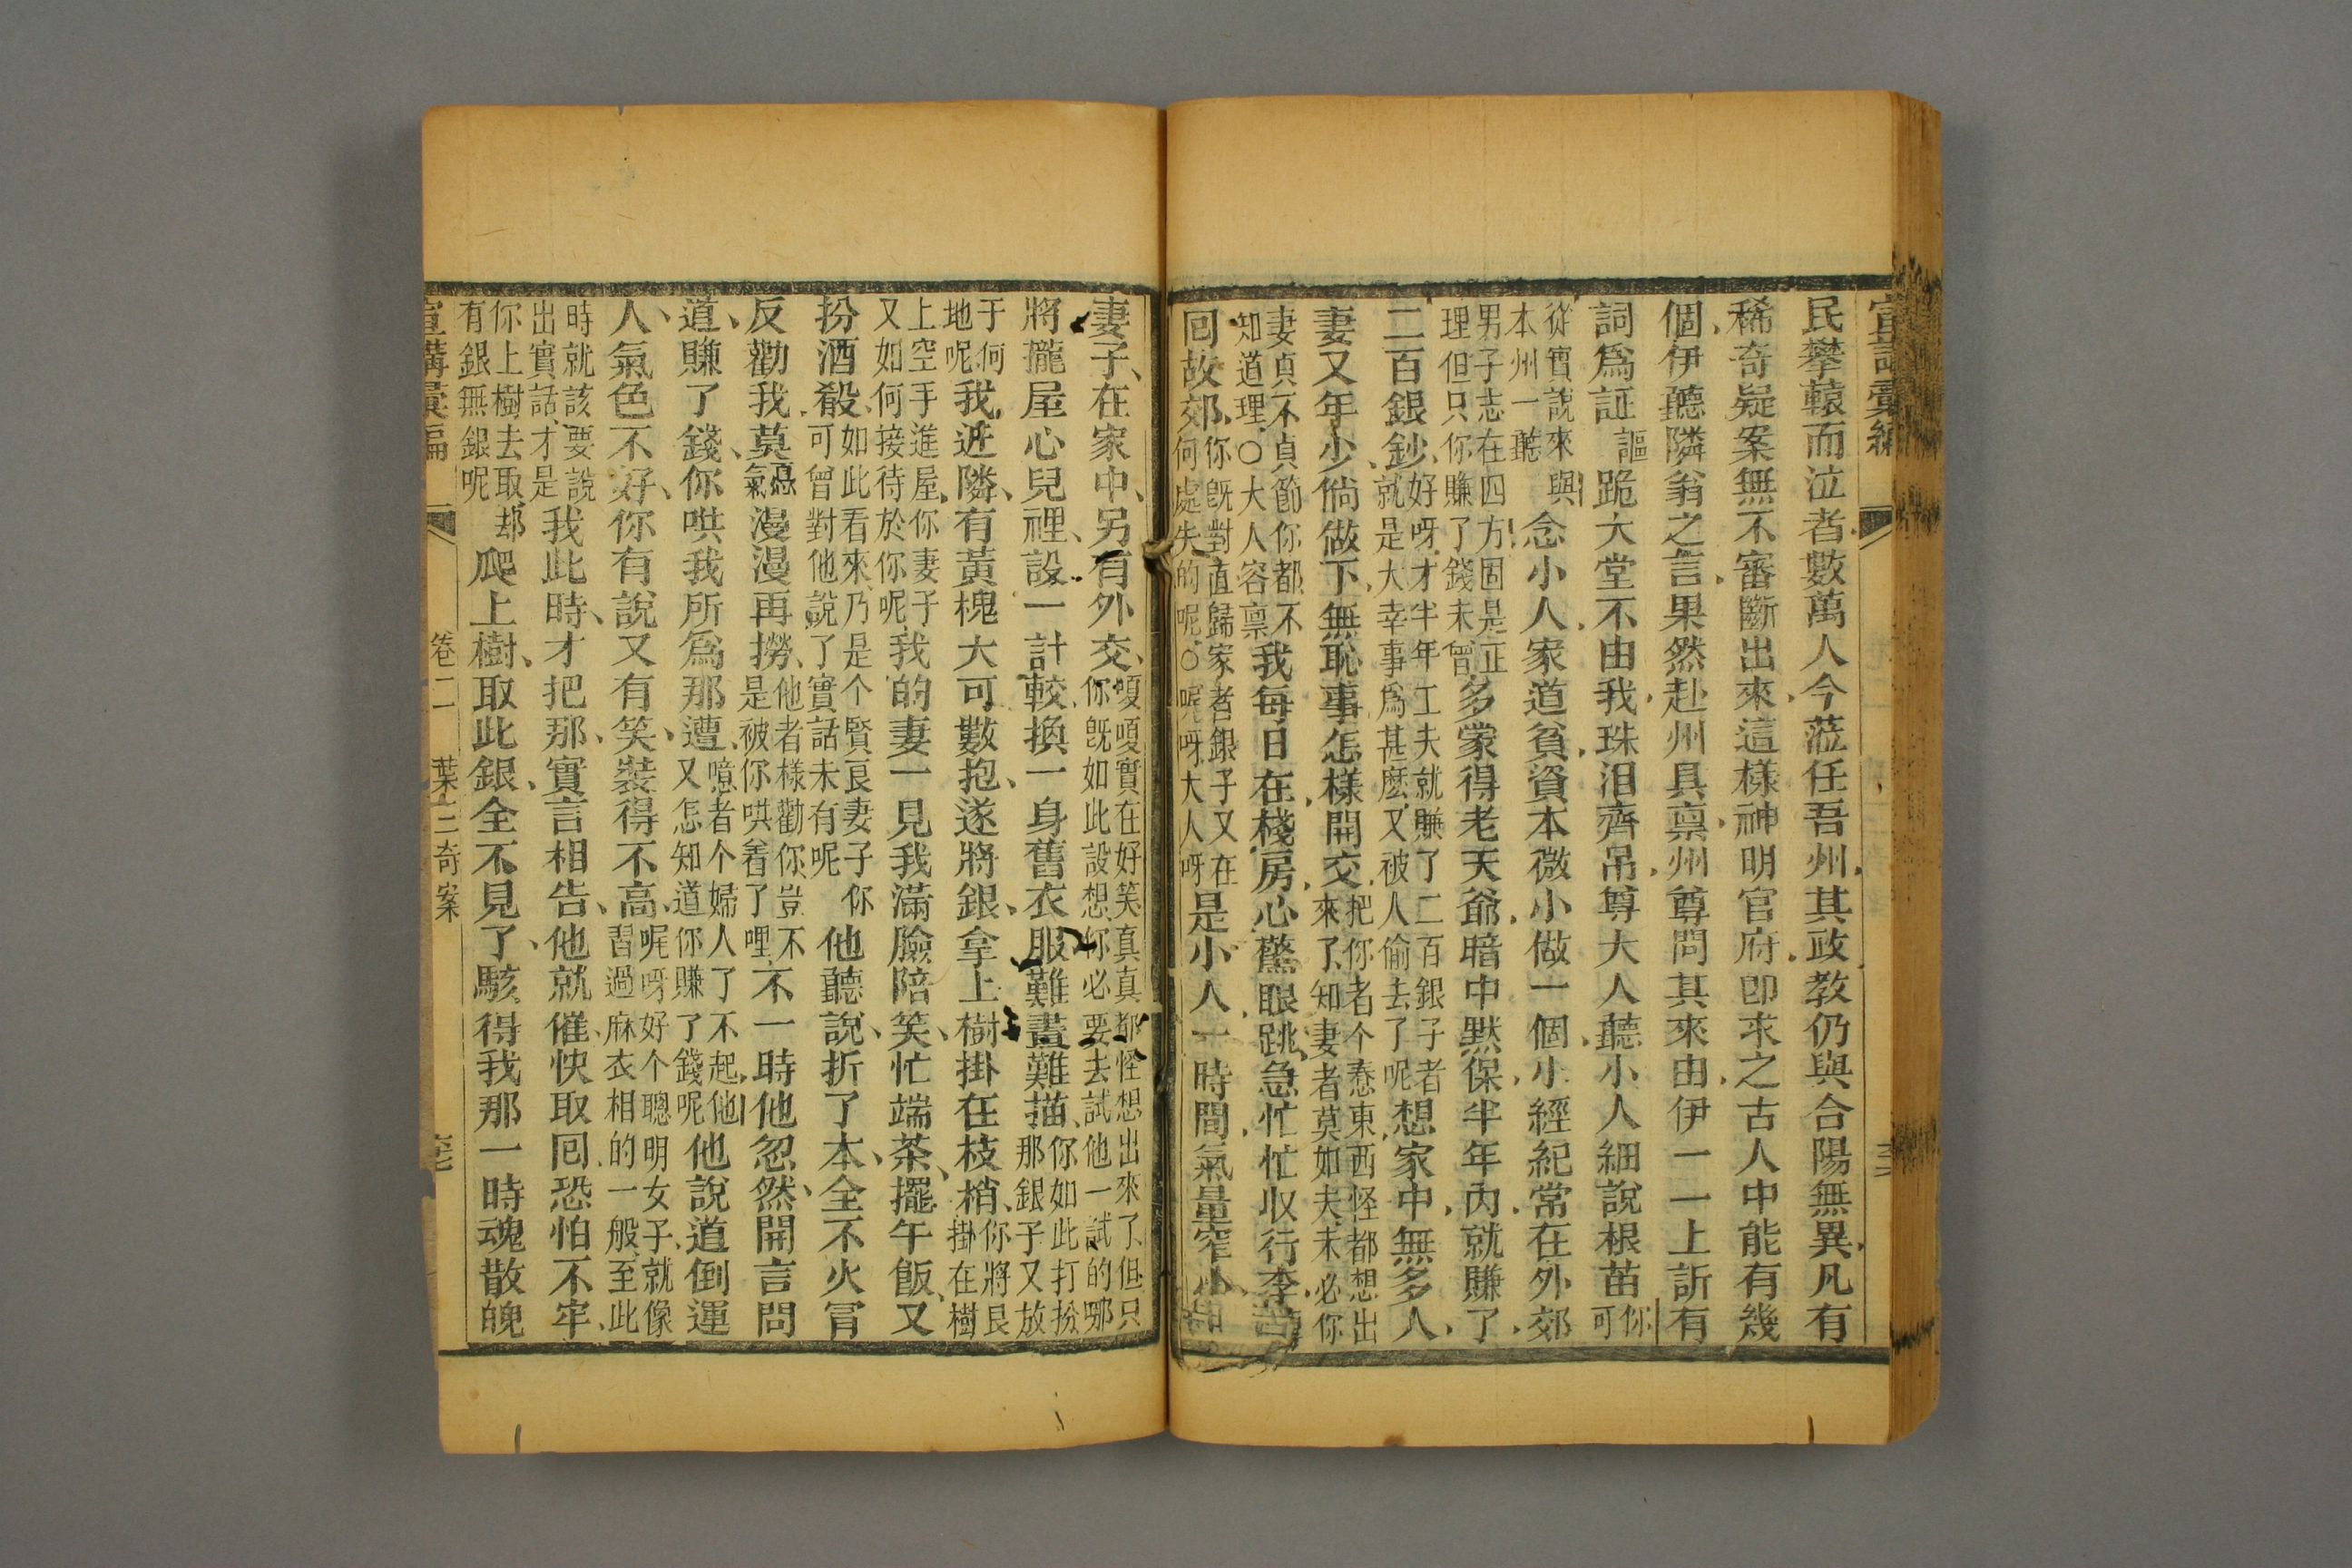 宣講彙編
民攀轅而泣者數萬人今蒞任吾州其政教仍與合陽無異凡有
稀奇疑案無不審斷出來這樣神明官府卽求之古人中能有幾
個伊聽隣翁之言果然赴州具禀州尊問其來由伊一一上訴有
詞爲証謳跪大堂不由我珠泪齊吊尊大人聽小人細說根苗你可
從實說來與本州一聽念小人家道貧資本微小做一個小經紀常在外郊
男子志在四方固是正理但只你賺了錢未曾多蒙得老天爺暗中默保半年內就賺了
二百銀鈔好呀才半年工夫就賺了二百銀子者就是大幸事爲甚麽又被人偷去了呢想家中無多人
妻又年少倘做下無恥事怎樣開交把你者个憃東西怪都想出來了知妻者莫如夫未必你
妻貞不貞節你都不知道理〇大人容禀我每日在棧房心驚眼跳急忙忙收行李
回故郊你旣對直歸家者銀子又在何處失的呢〇呢呀大人呀是小人一時間氣量窄小
妻子在家中另有外交嗄嗄實在好笑真真都怪想出來了但只你旣如此設想你必要去試他一試的哪
將攏屋心兒裡設一計較換一身舊衣服難畫難描你如此打扮那銀子又放
于何地呢我近隣有黃槐大可數抱遂將銀拿上樹掛在枝梢你將艮掛在樹
上空手進屋你妻子又如何接待於你呢我的妻一見我滿臉陪笑忙端茶擺午飯又
扮酒殽如此看來乃是个賢良妻子你可曾對他說了實話未有呢他聽說折了本全不火冒
反勸我莫忍氣漫漫再撈他者樣勸你豈不是被你哄着了哩不一時他忽然開言問
道賺了錢你哄我所爲那遭噫者个婦人了不起他又怎知道你賺了錢呢他說道倒運
人氣色不好你有說又有笑裝得不高呢呀好个聰明女子就像習過麻衣相的一般至此
時就該要說出實話才是我此時才把那實言相告他就催快取回恐怕不牢
你上樹去取却有銀無銀呢爬上樹取此銀全不見了駭得我那一時魂散魄
宣講彙編
卷二
葉三奇案